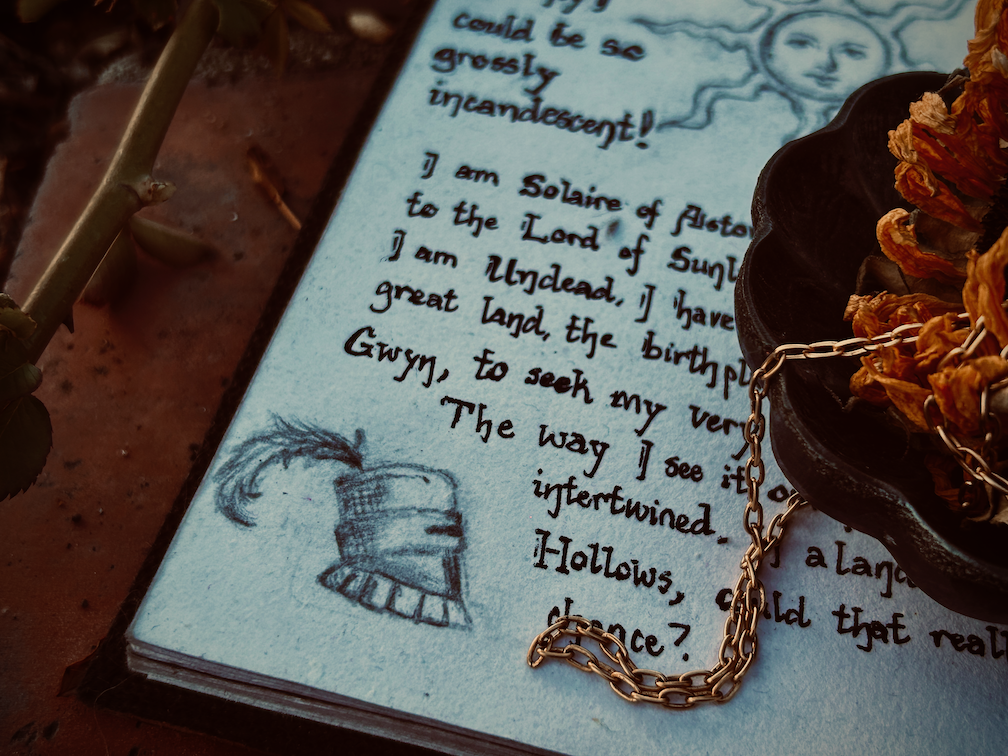 could be so
grossly
incandescent!
I am Solaire of Asto
to the Lord of Sunl
I am Undead. I have
great land, the birthpl
Gwyn, to seek my very
The way I see it
intertwined. a land
Hollows, could that reall
chance?